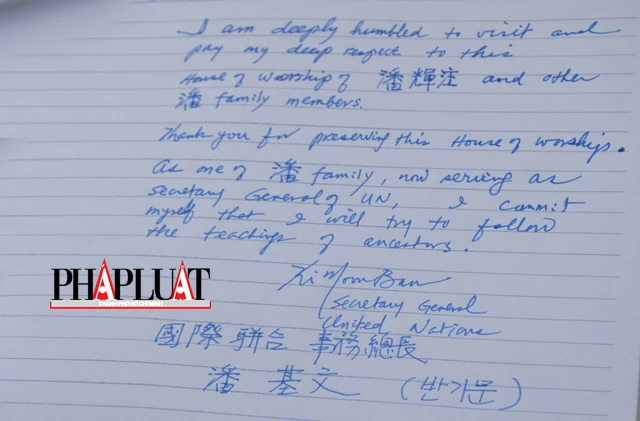 I am deeply humbled to visit and
pay my deep respect to this
House of worship of 潘輝注 and other
潘 family members.
Thank you for preserving this House of worship.
As one of 潘 family, now serving as
Secretary General of UN, I commit
myself that I will try to follow
the teachings of ancestors.
Ki Moon Ban
Secretary General
United Nations
國際聯合 事務總長
潘基文 (반기문)
PHÁPLUẬT